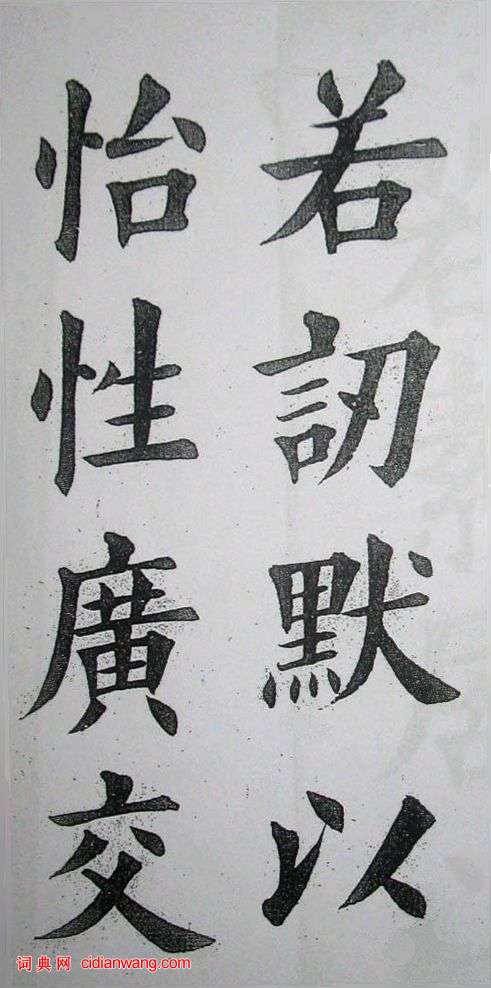 若訒默以
怡性廣交
词典网 cidianwang.com